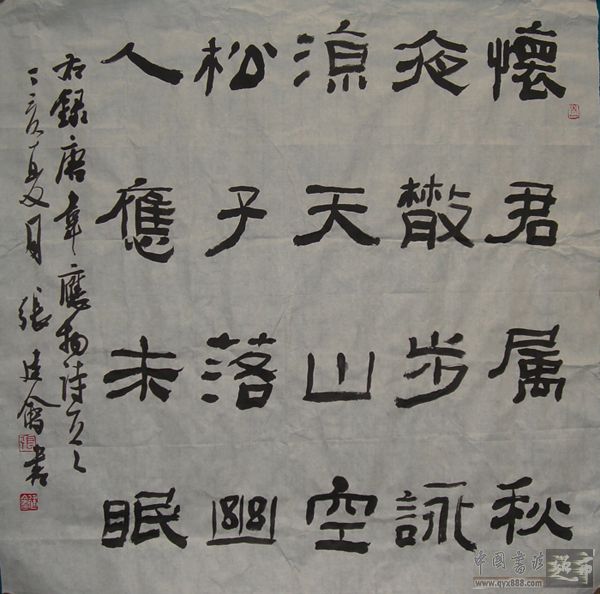 懷君属秋
夜散步詠
涼天山空
松子落幽
人應未眠
右錄唐韋應物詩
丁亥夏月 張建會書
中国書法
www.qyx888.com